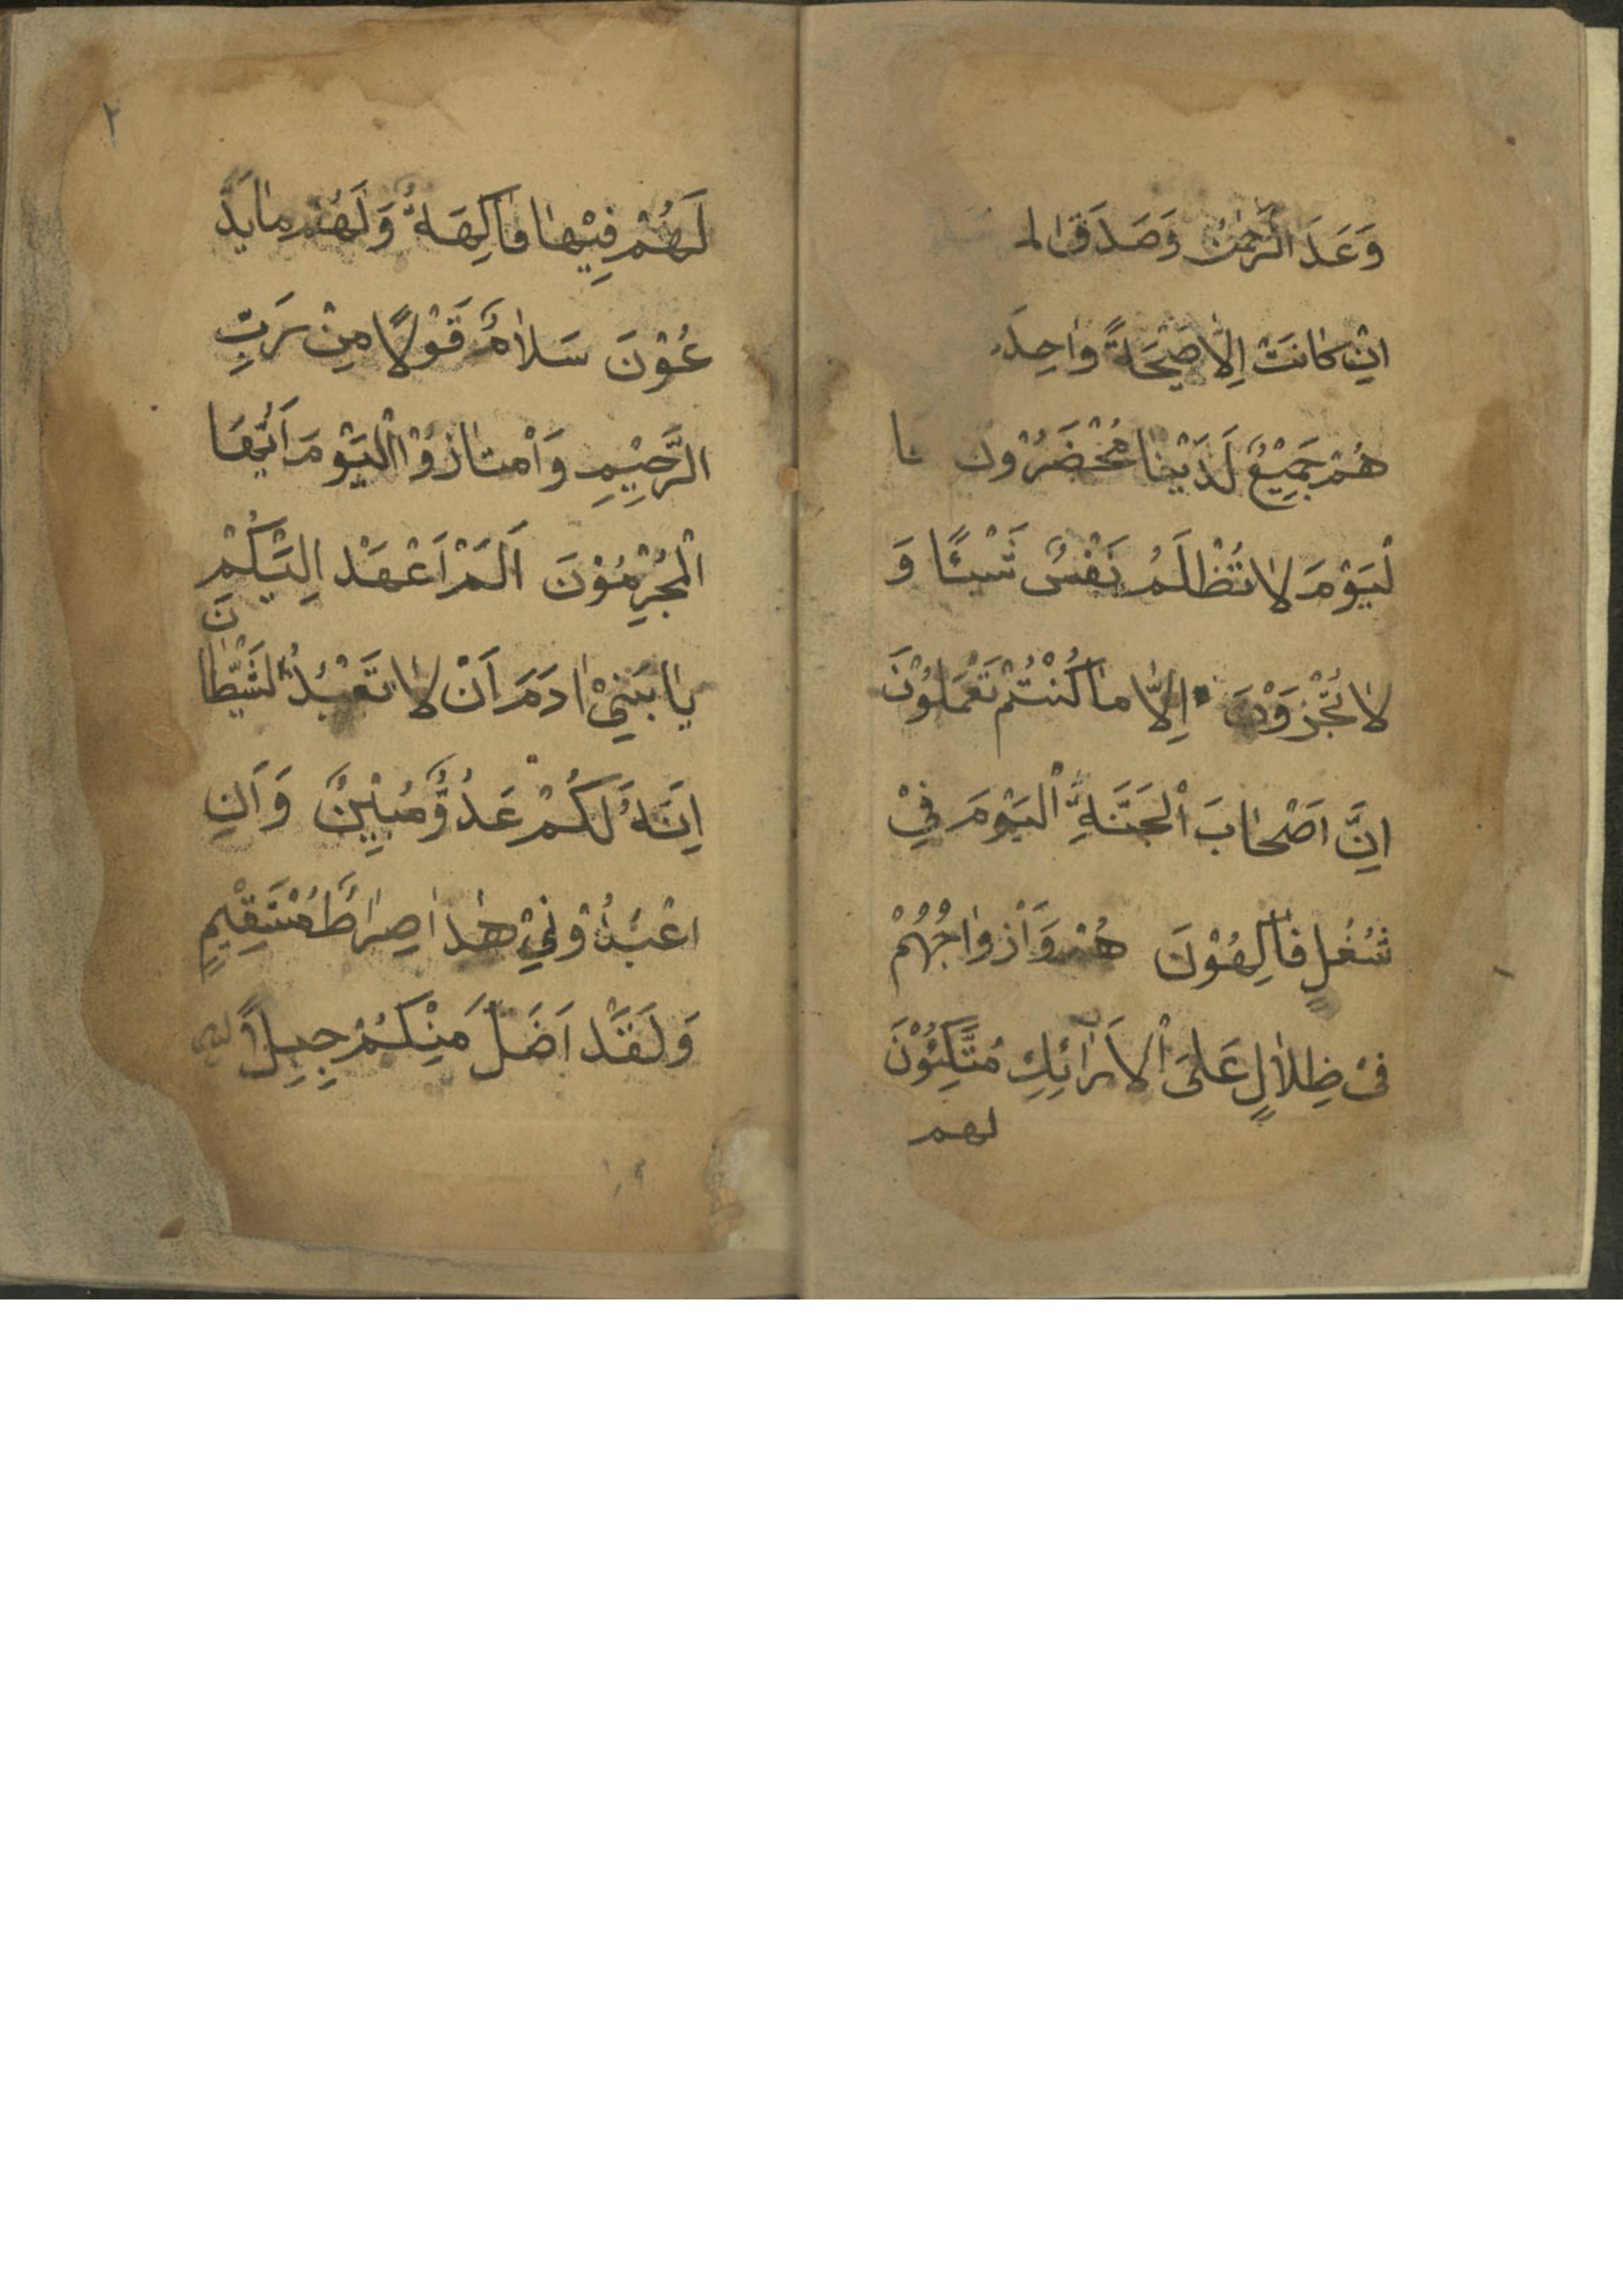 وَعَدَ الرَّحْمٰنُ وَصَدَقَ الم
اِنْ كانَتْ اِلّا صَيْحَةً واحِدَ
هُمْ جَمِيْعٌ لَدَيْنا مُحْضَرُوْن نا
لْيَوْمَ لا تُظْلَمُ نَفْسٌ شَيْئًا وَ
لا تُجْزَوْنَ اِلّا ما كُنْتُمْ تَعْمَلُوْنَ
اِنَّ اَصْحابَ الْجَنَّةِ الْيَوْمَ فِيْ
شُغُلٍ فاكِهُوْنَ هُمْ وَاَزْواجُهُمْ
فى ظِلالٍ عَلَى الْاَرائِكِ مُتَّكِئُوْنَ
لهم
٢
لَهُمْ فِيْها فاكِهَةٌ وَلَهُمْ مايَدَّ
عُوْنَ سَلامٌ قَوْلًا مِنْ رَبٍّ
الرَّحِيْمِ وَاْمْتازُوْا الْيَوْمَ اَيُّهَا
الْمُجْرِمُوْنَ اَلَمْ اَعْهَدْ اِلَيْكُمْ
يا بَنِيْ ادَمَ اَنْ لا تَعْبُدُ الشَّيْطا
ن
اِنَّهُ لَكُمْ عَدُوٌّ مُبِيْنٌ وَاَنِ
اعْبُدُوْنِيْ هٰذا صِراطٌ مُسْتَقِيْمٍ
وَلَقَدْ اَضَلَّ مَنِْكُمْ جِبِلًّا